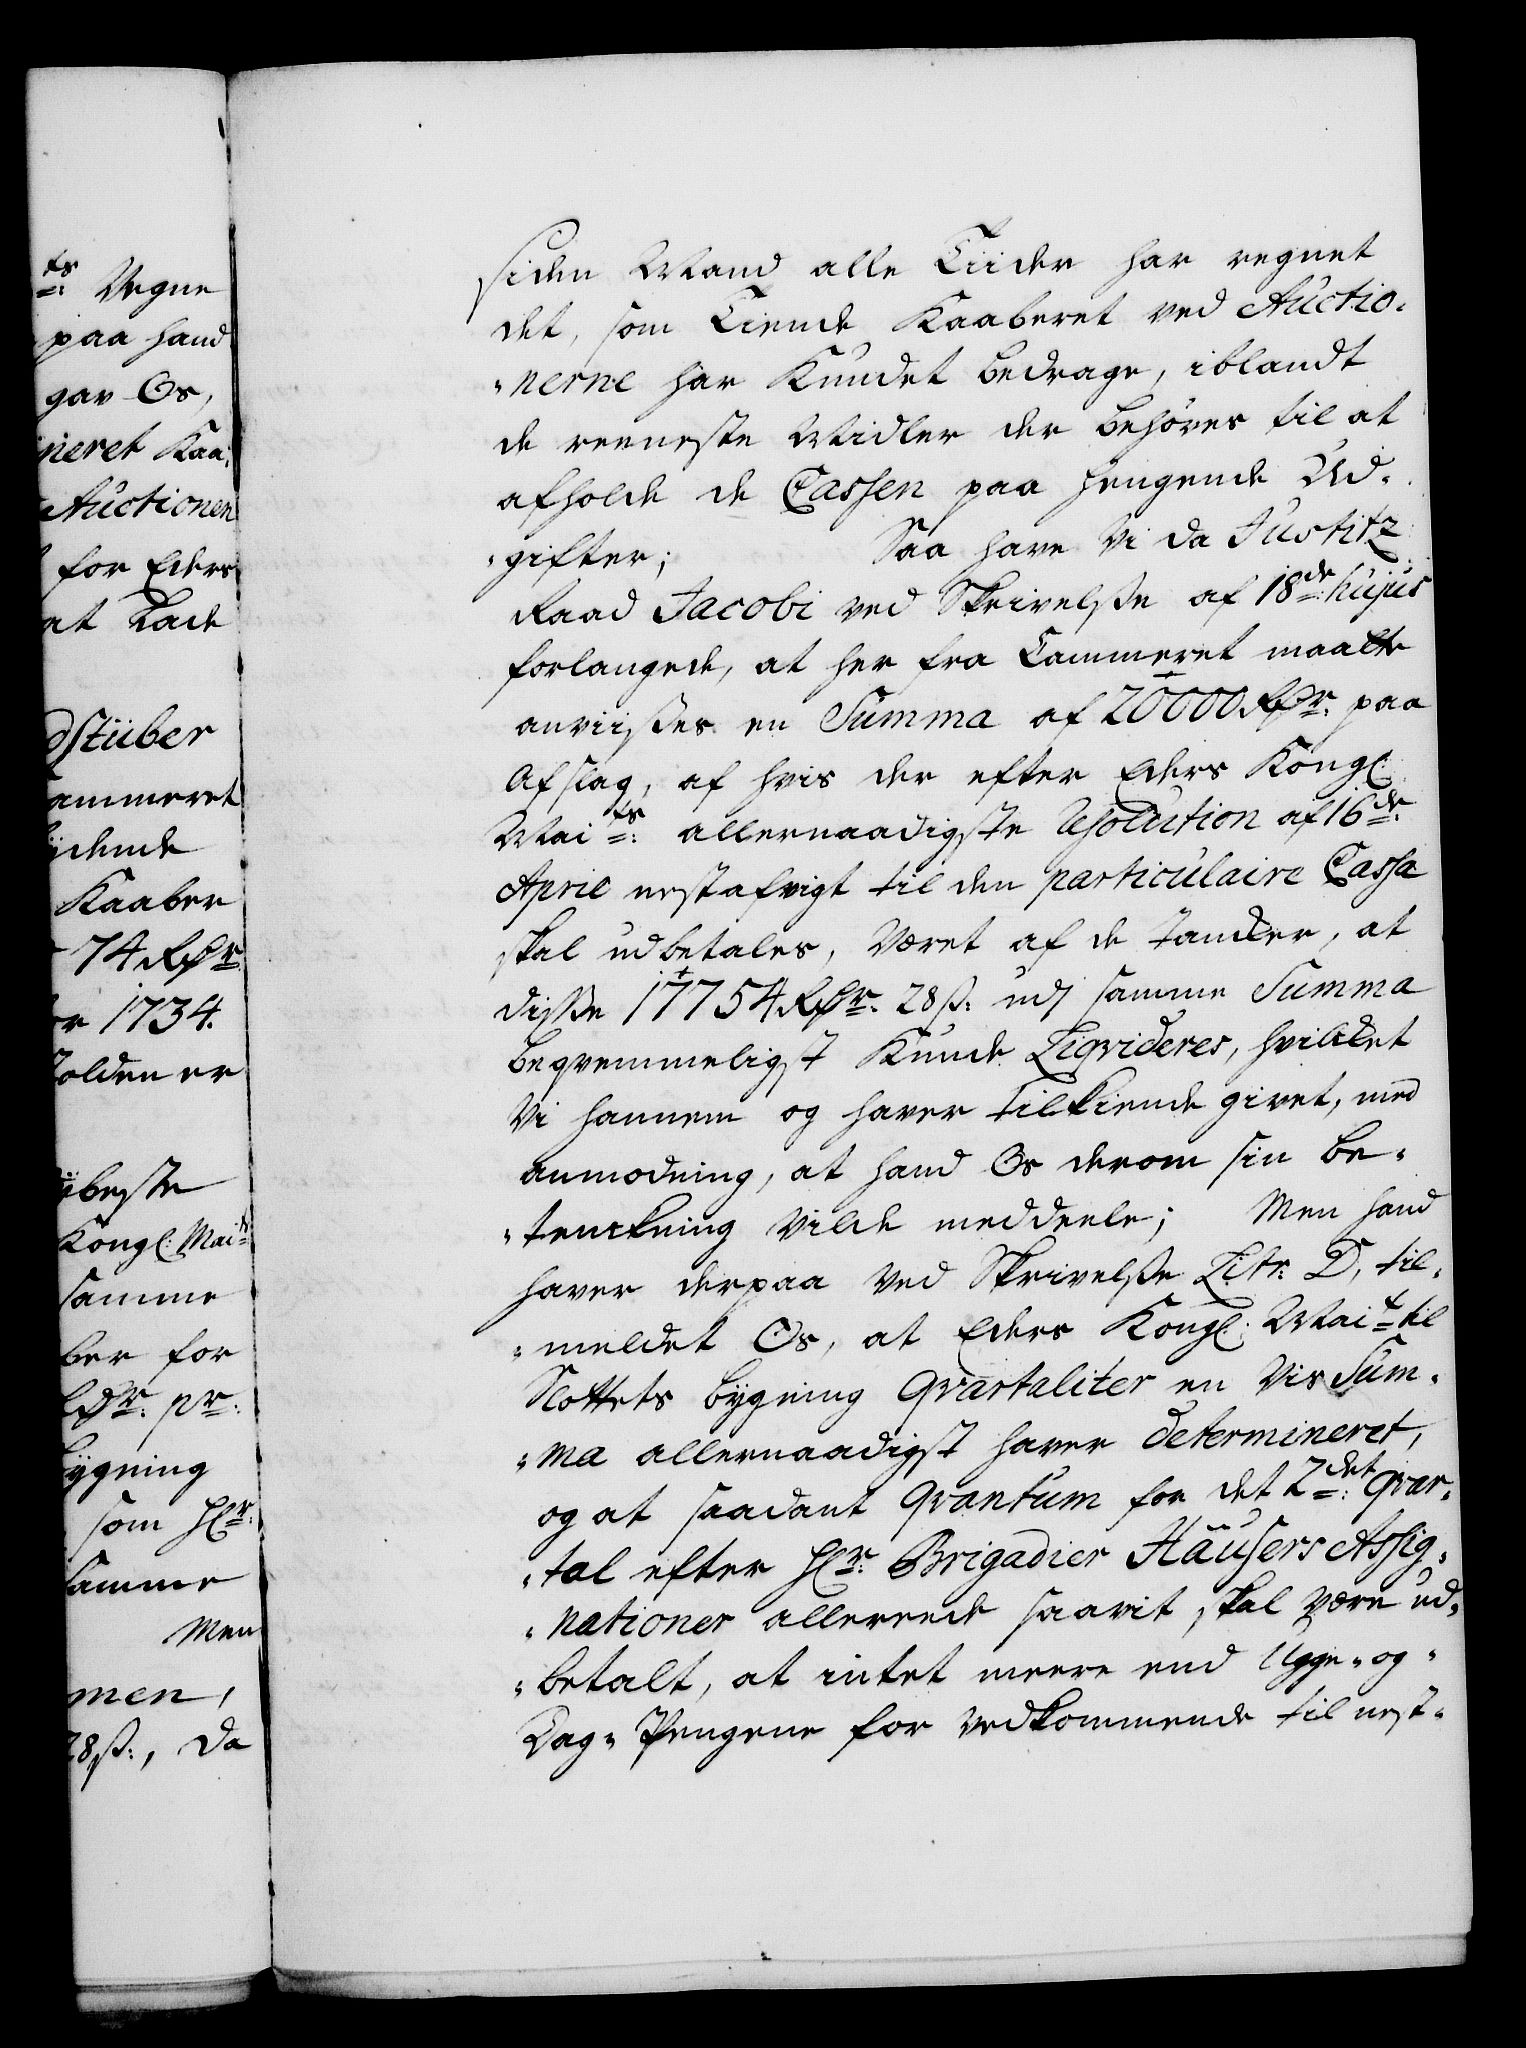 ts: Vegne
paa hand
gav Os,
neret Kaa-
Auctionen
for Eders
at Lade
dstüber
ammeret
ydende
Kaaber
74 Rdr.
or 1734.
olden er
ybeste
Kongl: Maits
samme
ber for
ldr: pr:
bygning
som Hr:
samme
Men
men,
28 ß:, da
siden Mand alle Tiider har regnet
det, som Tiende Kaaberet ved Auctio-
-nerne har Kundet bedrage, iblandt
de reeneste Midler der behøves til at
afholde de Cassen paa hengende Ud-
-gifter; Saa have Vi da Justitz
Raad Jacobi ved Skrivelsse af 18de hujus
forlangede, at her fra Cammeret maatte
anviisses en Summa af 20000 Rdr: paa
Afslag, af hvis der efter Eders Kongl:
Maits: allernaadigste Resolution af 16de:
April nestafvigt til den particulaire Cassa
skal udbetales, Været af de tancker, at
disse 17754 Rdr: 28 ß: udj samme Summa
beqvemmeligst Kunde Liqvideres, hvilcket
Vi hannem og haver tilkiende givet, med
anmodning, at hand Os derom sin be-
-tenckning vilde meddeele; Men hand
haver derpaa ved Skrivelsse Litr: D, til-
-meldet Os, at Eders Kongl: Mait til
Slottets bygning Qvartaliter en vis Sum-
-ma allernaadigst haver determineret,
og at saadant Qvantum for det 2det: Qvar-
-tal efter Hr: Brigadier Häusers Assig-
-nationer allereede saavit skal være ud-
-betalt, at intet meere end Uge- og-
Dag- Pengene for vedkommende til nest-